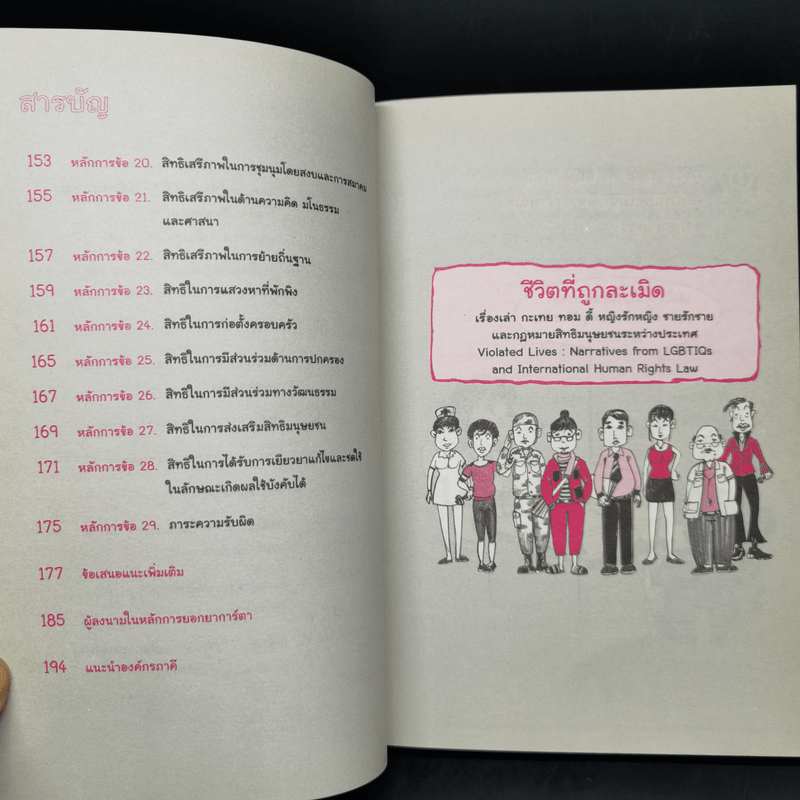 สารบัญ
153 หลักการข้อ 20. สิทธิเสรีภาพในการชุมนุมโดยสงบและการสมาคม
155 หลักการข้อ 21. สิทธิเสรีภาพในด้านความคิด มโนธรรม
และศาสนา
157 หลักการข้อ 22. สิทธิเสรีภาพในการย้ายถิ่นฐาน
159 หลักการข้อ 23. สิทธิในการแสวงหาที่พักพิง
161 หลักการข้อ 24. สิทธิในการก่อตั้งครอบครัว
165 หลักการข้อ 25. สิทธิในการมีส่วนร่วมด้านการปกครอง
167 หลักการข้อ 26. สิทธิในการมีส่วนร่วมทางวัฒนธรรม
169 หลักการข้อ 27. สิทธิในการส่งเสริมสิทธิมนุษยชน
171 หลักการข้อ 28. สิทธิในการได้รับการเยียวยาแก้ไขและชดใช้
ในลักษณะเกิดผลใช้บังคับได้
175 หลักการข้อ 29. ภาระความรับผิด
177 ข้อเสนอแนะเพิ่มเติม
185 ผู้ลงนามในหลักการยอกยาการ์ตา
194 แนะนำองค์กรภาคี
ชีวิตที่ถูกละเมิด
เรื่องเล่า กะเทย ทอม ดี้ หญิงรักหญิง ชายรักชาย
และกฎหมายสิทธิมนุษยชนระหว่างประเทศ
Violated Lives : Narratives from LGBTIQs
and International Human Rights Law